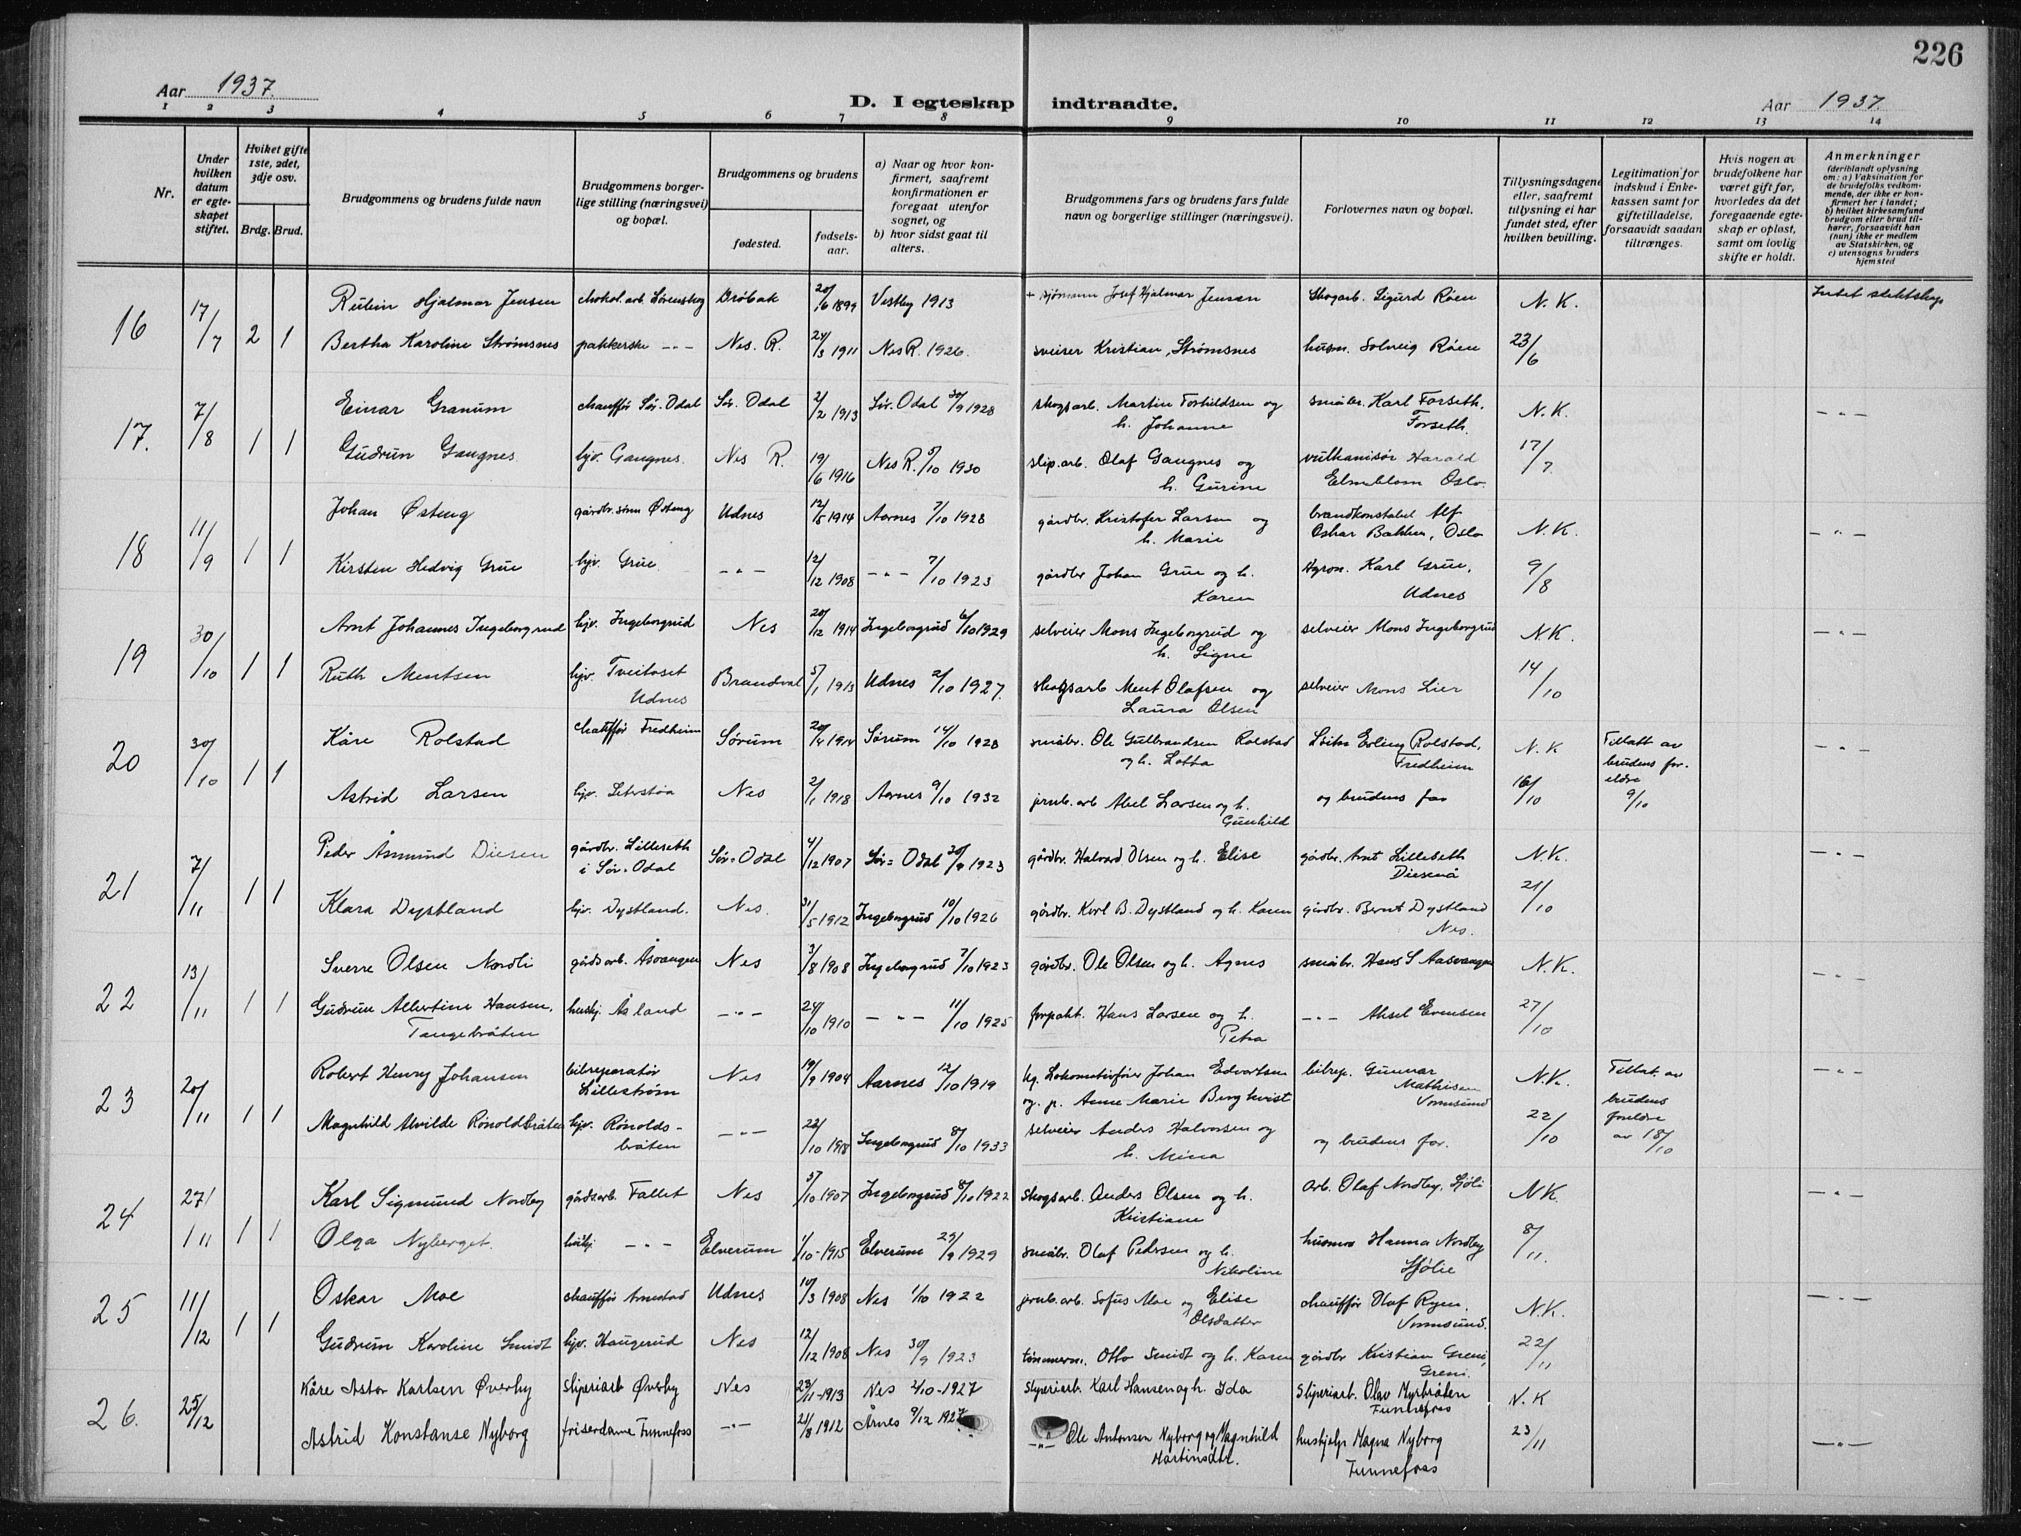 226
Aar 1937.
D. I egteskap indtraadte.
Aar 1937.
1 2 3 4 5 6 7 8 9 10 11 12 13 14
Nr.
Under hvilken datum er egteskapet stiftet.
Hvilket gifte 1ste, 2det, 3dje osv.
Brdg. Brud.
Brudgommens og brudens fulde navn
Brudgommens borgerlige stilling (næringsvei) og bopæl.
Brudgommens og brudens
fødested.
fødselsaar.
a) Naar og hvor konfirmert, saafremt konfirmationen er foregaat utenfor sognet, og
b) hvor sidst gaat til alters.
Brudgommens fars og brudens fars fulde navn og borgerlige stillinger (næringsvei).
Forlovernes navn og bopæl.
Tillysningsdagene eller, saafremt tillysning ei har fundet sted, efter hvilken bevilling.
Legitimation for indskud i Enkekassen samt for giftetilladelse, forsaavidt saadan tiltrænges.
Hvis nogen av brudefolkene har været gift før, hvorledes da det foregaaende egteskap er opløst, samt om lovlig skifte er holdt.
Anmerkninger (deriblandt oplysning om: a) Vaksination for de brudefolks vedkommende, der ikke er konfirmert her i landet; b) hvilket kirkesamfund brudgom eller brud tilhører, forsaavidt han (hun) ikke er medlem av Statskirken, og c) utensogns bruders hjemsted
16 17/7 2 1 Hjalmar Jensen chokol.arb. Sørenskog Drøbak 20/6 1899 Vestby 1913 + sjømann Josef Hjalmar Jensen Skogarb. Sigurd Røen N.K. Intet slektskap
Bertha Karoline Strømsnes pakkerske -"- Nes. R. 24/3 1911 Nes R. 1926. sveiser Kristian Strømsnes husm. Solveig Røen 23/6
17. 7/8 1 1 Einar Granum chauffør Sør-Odal Sør. Odal 2/2 1913 Sør. Odal 30/9 1928 skogsarb. Martin Torkildsen og h. Johanne småbr. Karl Forseth, Forseth. N.K. -"-
Gudrun Gaugnes hjv. Gaugnes. Nes R. 19/6 1916 Nes R. 5/10 1930 slip.arb. Olaf Gaugnes og h. Gurine vulkanisør Harald Elmeblom Oslo. 17/7.
18 11/9 1 1 Johan Østeng gårdbr.sønn Østeng Udnes 12/5 1914 Aarnes 7/10 1928 gårdbr. Kristofer Larsen og h. Marie brandkonstabel Alf Oskar Bakken, Oslo N.K. -"-
Kirsten Hedvig Grue hjv. Grue. -"- 12/12 1908 -"- 7/10 1923 gårdbr Johan Grue og h. Karen Agron. Karl Grue, Udnes 9/8
19 30/10 1 1 Arnt Johannes Ingeborgrud hjv. Ingeborgrud Nes 20/12 1914 Ingeborgrud 6/10 1929 selveier Mons Ingeborgrud og h. Signe selveier Mons Ingeborgrud N.K. -"-
Ruth Mentsen hjv. Tveitoset Udnes Brandval 5/1 1913 Udnes 2/10 1927. skogsarb Ment Olafsen og Laura Olsen selveier Mons Lier 14/10
20 30/10 1 1 Kåre Rolstad chauffør Fredheim Sørum 20/4 1914 Sørum 14/10 1928 småbr. Ole Gulbrandsen Rolstad og h. Lotta Erling Rolstad, Fredheim N.K Tillatt av brudens foreldre 9/10 -"-
Astrid Larsen hjv. Seterstøa Nes 2/1 1918 Aarnes 9/10 1932 jernb.arb Abel Larsen og h. Gunhild og brudens far 16/10
21 7/11 1 1 Peder Åsmund Diesen gårdbr. Lilleseth i Sør-Odal Sør-Odal 4/12 1907 Sør-Odal 30/9 1923 gårdbr. Halvard Olsen og h. Elise gårdbr. Arnt Lilleseth Diesenå N.K. -"-
Klara Dystland hjv. Dystland. Nes. 31/5 1912 Ingeborgrud 10/10 1926 gårdbr. Karl B. Dystland og h. Karen gårdbr. Bernt Dystland Nes. 21/10
22 13/11 1 1 Sverre Olsen Nordli gårdsarb. Åsvangen Nes 3/8 1908 Ingeborgrud 7/10 1923 gårdbr. Ole Olsen og h. Agnes småbr. Hans S Aasvangen N.K. -"-
Gudrun Albertine Hansen, Tangebråten hushj. Åsland -"- 24/10 1910 -"- 11/10 1925 forpakt. Hans Larsen og h. Petra -"- Aksel Evensen 27/10
23 20/11 1 1 Robert Henry Johansen bilreparatør Lillestrøm Nes 19/9 1904 Aarnes 12/10 1919 ug. Lokomotivfører Johan Edvartsen og p. Anne Marie Bergkvist bilrep. Gunnar Mathisen Vormsund N.K. Tillat. av brudens foreldre av 18/10 -"-
Magnhild Alvilde Rönoldbråten hjv. Rönoldsbråten -"- 22/10 1918 Ingeborgrud 8/10 1933 selveier Anders Halvorsen og h. Mina og brudens far. 22/10
24 27/11 1 1 Karl Sigmund Nordby gårdsarb. Fallet Nes 5/10 1907 Ingeborgrud 8/10 1922 skogsarb. Anders Olsen og h. Kristiane arb. Olaf Nordby, Hjøli N.K. -"-
Olga Nyberget. hushj. -"- Elverum 1/10-1915 Elverum 29/9 1929 småbr. Olaf Pedersen og h. Nikoline husmor Hanna Nordby Hjølie 8/11.
25 11/12 1 1 Oskar Moe chauffør Arnestad Udnes 14/3 1908 Nes 1/10 1922 jernb.arb. Sofus Moe og Elise Olsdatter chauffør Olaf Ryen, Vormsund. N.K. -"-
Gudrun Karoline Smidt hjv. Haugerud Nes 12/12 1908 Nes 30/9 1923 tømmerm. Otto Smidt og h. Karen gårdbr Kristian Greni, Greni. 22/11
26. 25/12 Kåre Astor Karlsen Øverby sliperiarb Øverby Nes 23/11-1913 Nes 2/10-1927 Sliperiarb. Karl Hansen og h. Ida Sliperiarb. Olav Myrbråten Funnefoss N.K
Astrid Konstanse Nyborg friserdame Funnefoss -"- 21/8 1912 Årnes 9/12 1927 -"- Ole Antonsen Nyborg og Magnhild Martinsdtr. hushjelp Magna Nyborg Funnefoss 23/11 -"-